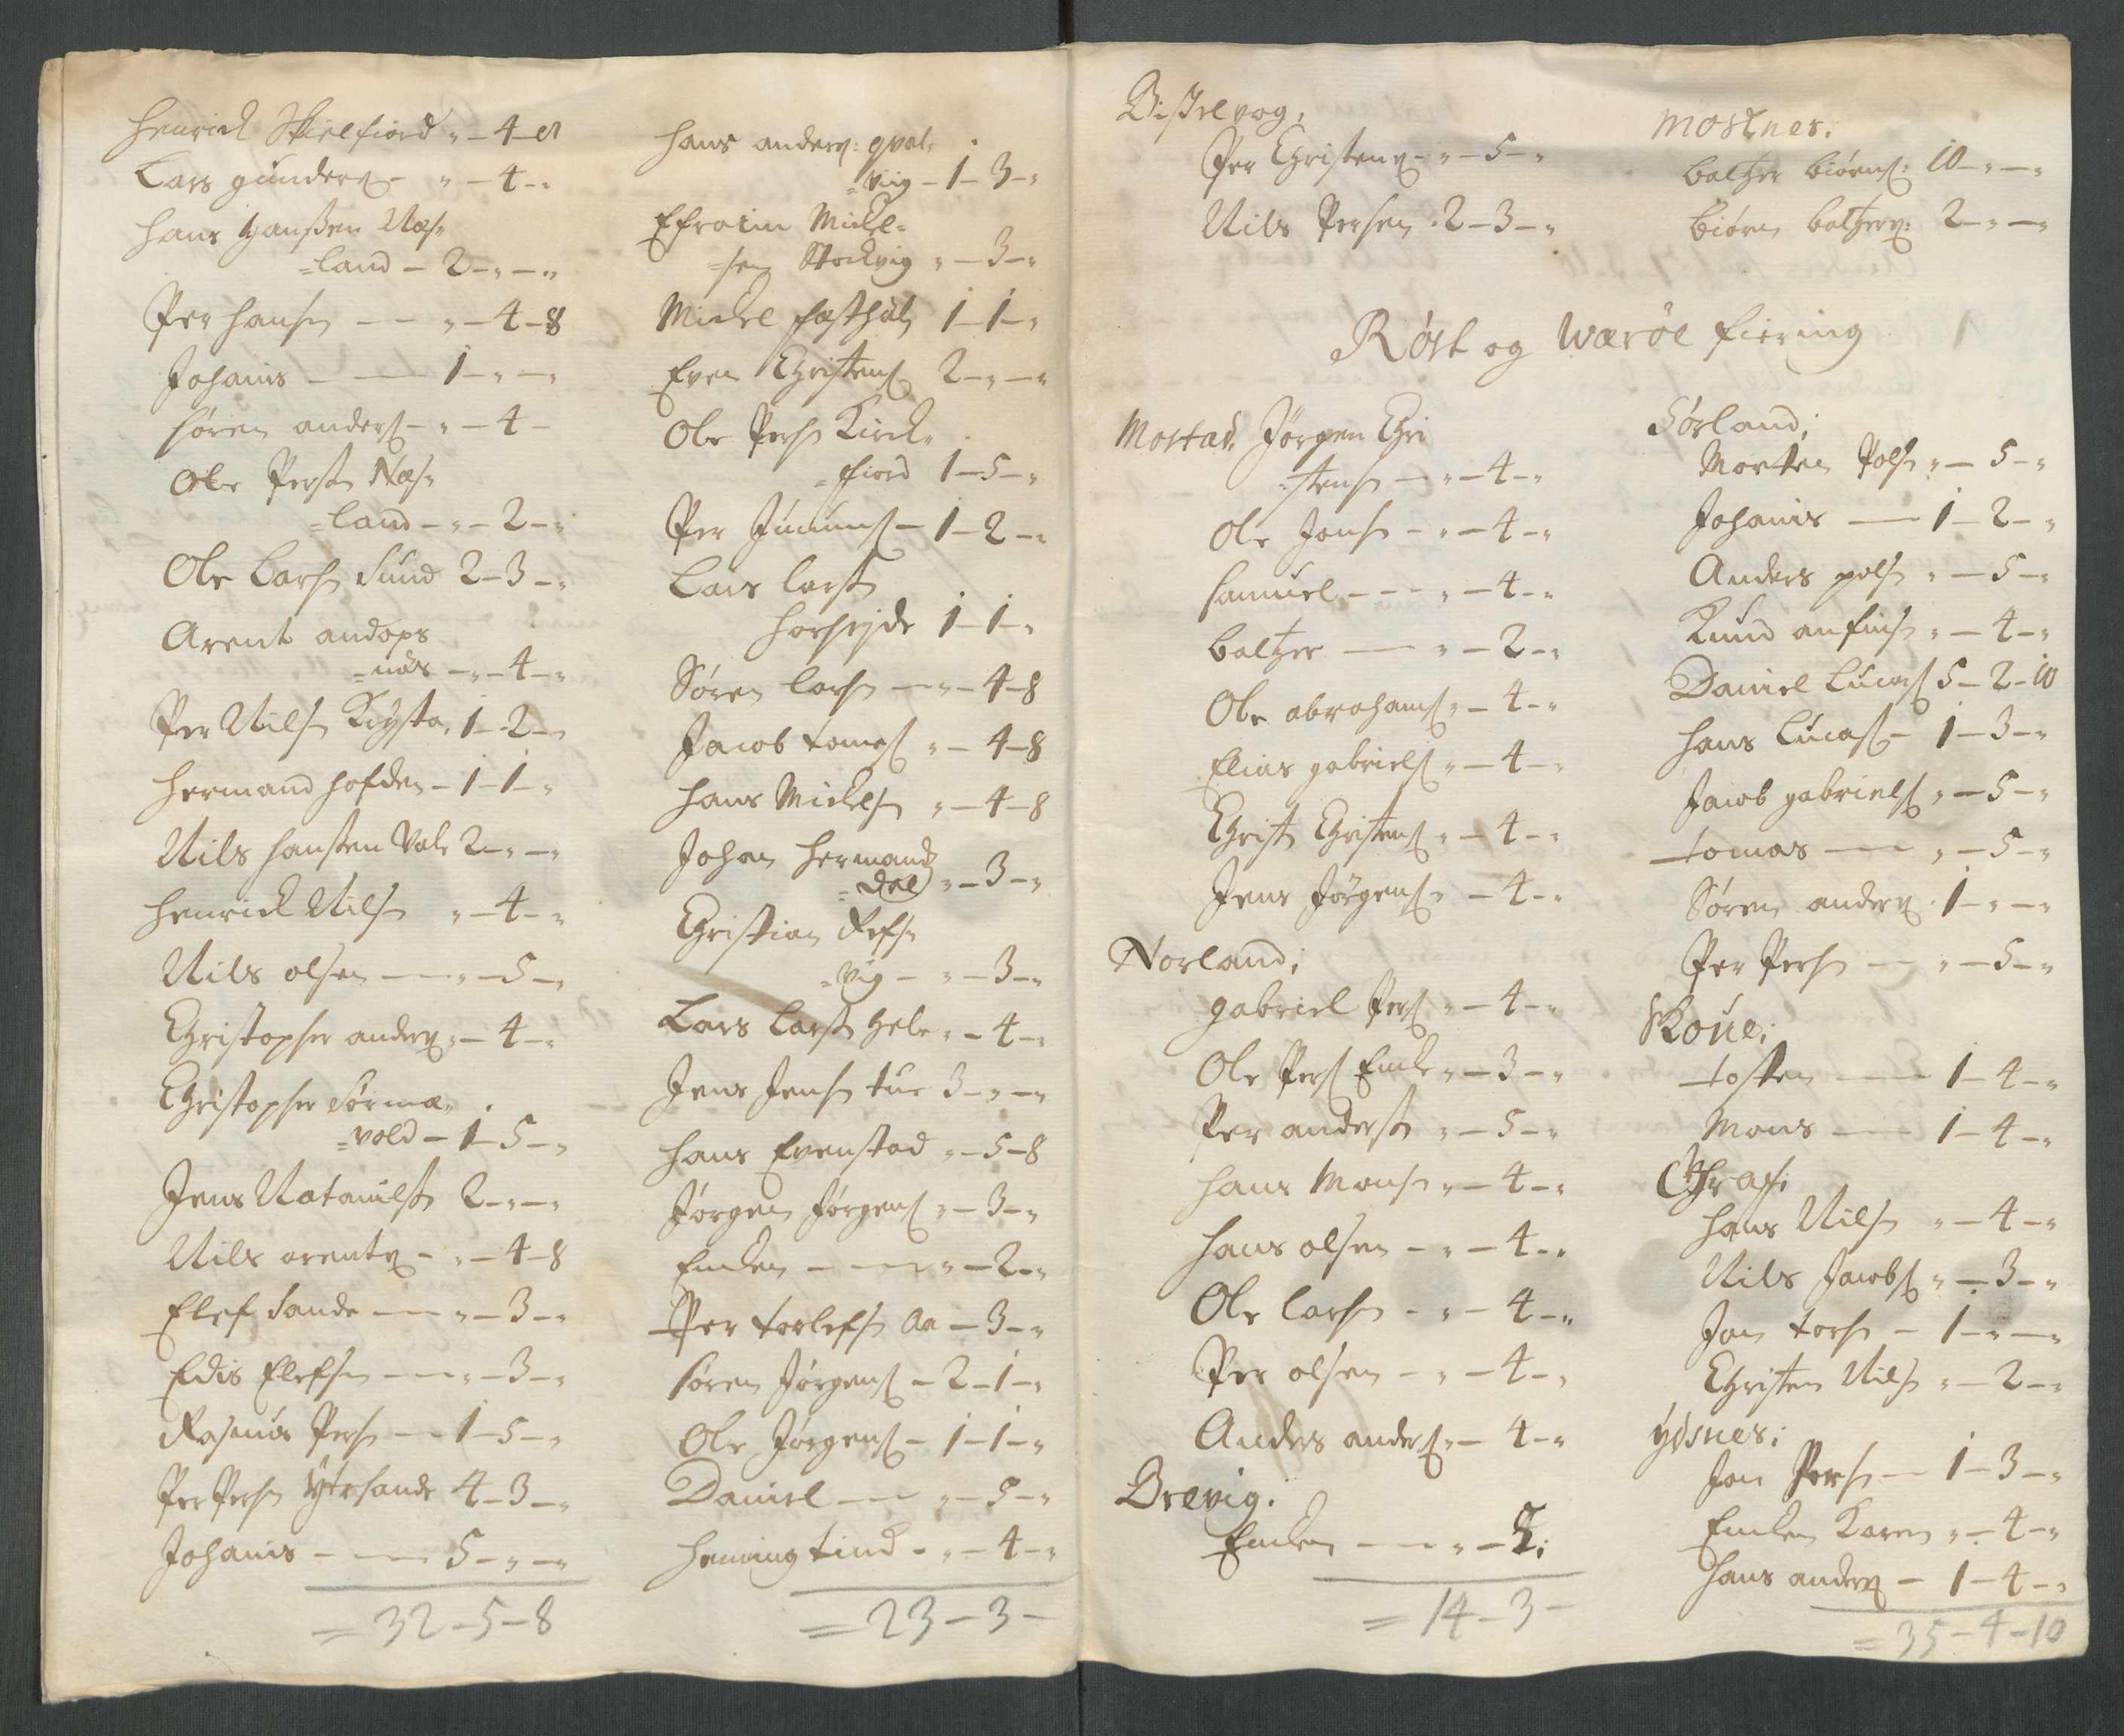 Henrick Skielfiord " – 4 – 8
Lars gunders – " – 4 – "
Hans Hanssen Næs=
=land – 2 – " – "
Per Hansen — " – 4 – 8
Johanis — 1 – " – "
Sören anders – " – 4 –
Ole Persen Næs=
=land – " – 2 – "
Ole Larsen Sund 2 – 3 – "
Arent andops
=nes – " – 4 – "
Per Nilsen 1 – 2 – "
Hermand Hofden – 1 – 1 – "
Nils Hansten Vale 2 – " – "
Henrick Nilsen " – 4 – "
Nils olsen — " – 5 – "
Christopher anders " – 4 – "
Christopher Sörmæ=
=vold – 1 – 5 – "
Jens Natanilsen 2 – " – "
Nils arents – " – 4 – 8
Elef Sande — " – 3 – "
Edis Elefsen — " – 3 – "
Rasmus Persen — 1 – 5 – "
Per Persen Ytersande 4 – 3 – "
Johanis — 5 – " – "
= 32 – 5 – 8
Hans anders: qval=
=viig – 1 – 3 – "
Efraim Mickel=
=sen Stockvig " – 3 – "
Mickel 1 – 1 – "
Even Christens 2 – " – "
Ole Persen Kirck=
=fiord 1 – 5 – "
Per – 1 – 2 – "
Lars Larsen
1 – 1 – "
Sören Larsen — " – 4 – 8
Jacob tomes " – 4 – 8
Hans Mickelsen " – 4 – 8
Johan Hermands
=Dal " – 3 – "
Christian Refs=
=vig – " – 3 – "
Lars Larsen Hele " – 4 – "
Jens Jensen tue 3 – " – "
Hans Evenstad " – 5 – 8
Jörgen Jörgens " – 3 – "
Encken — " – 2 – "
Per torlefsen Aa – 3 – "
Sören Jörgens – 2 – 1 – "
Ole Jörgens – 1 – 1 – "
Daniel — " – 5 – "
Heming tind – " – 4 – "
= 23 – 3 –
Bistevog,
Per Christens – " – 5 – "
Nils Persen 2 – 3 – "
Mosknes.
baltzer biörns: 10 – " – "
biörn baltzers: 2 – " – "
Röst og Wæröe fiering
Mostad, Jörgen Chri
=stensen — " – 4 – "
Ole Jonsen – " – 4 – "
Samuel — " – 4 – "
baltzer — " – 2 – "
Ole abrahams " – 4 – "
Elias gabriels " – 4 – "
Christen Christens " – 4 – "
Jens Jörgens " – 4 – "
Norland;
gabriel Pers " – 4 – "
Ole Pers Encke " – 3 – "
Per andersen " – 5 – "
Hans Monsen " – 4 – "
Hans olsen – " – 4 – "
Ole Larsen – " – 4 – "
Per olsen – " – 4 – "
Anders anders " – 4 – "
Brevig.
Encken — " – 5:
= 14 – 3 –
Sörland;
Morten Polsen " – 5 – "
Johanis — 1 – 2 – "
Anders polsen " – 5 – "
Knud anfinsen " – 4 – "
Daniel Lucas 5 – 2 – 10
Hans Lucas – 1 – 3 – "
Jacob gabriels " – 5 – "
tomas — " – 5 – "
Sören anders 1 – " – "
Per Persen — " – 5 – "
Skoue;
tosten — 1 – 4 – "
Mons — 1 – 4 – "
Hans Nilsen " – 4 – "
Nils Jacobs " – 3 – "
Jon torsen – 1 – " – "
Christen Nilsen " – 2 – "
ydsnes;
Jon Persen – 1 – 3 – "
Encken Karen " – 4 – "
Hans anders – 1 – 4 – "
= 35 – 4 – 10